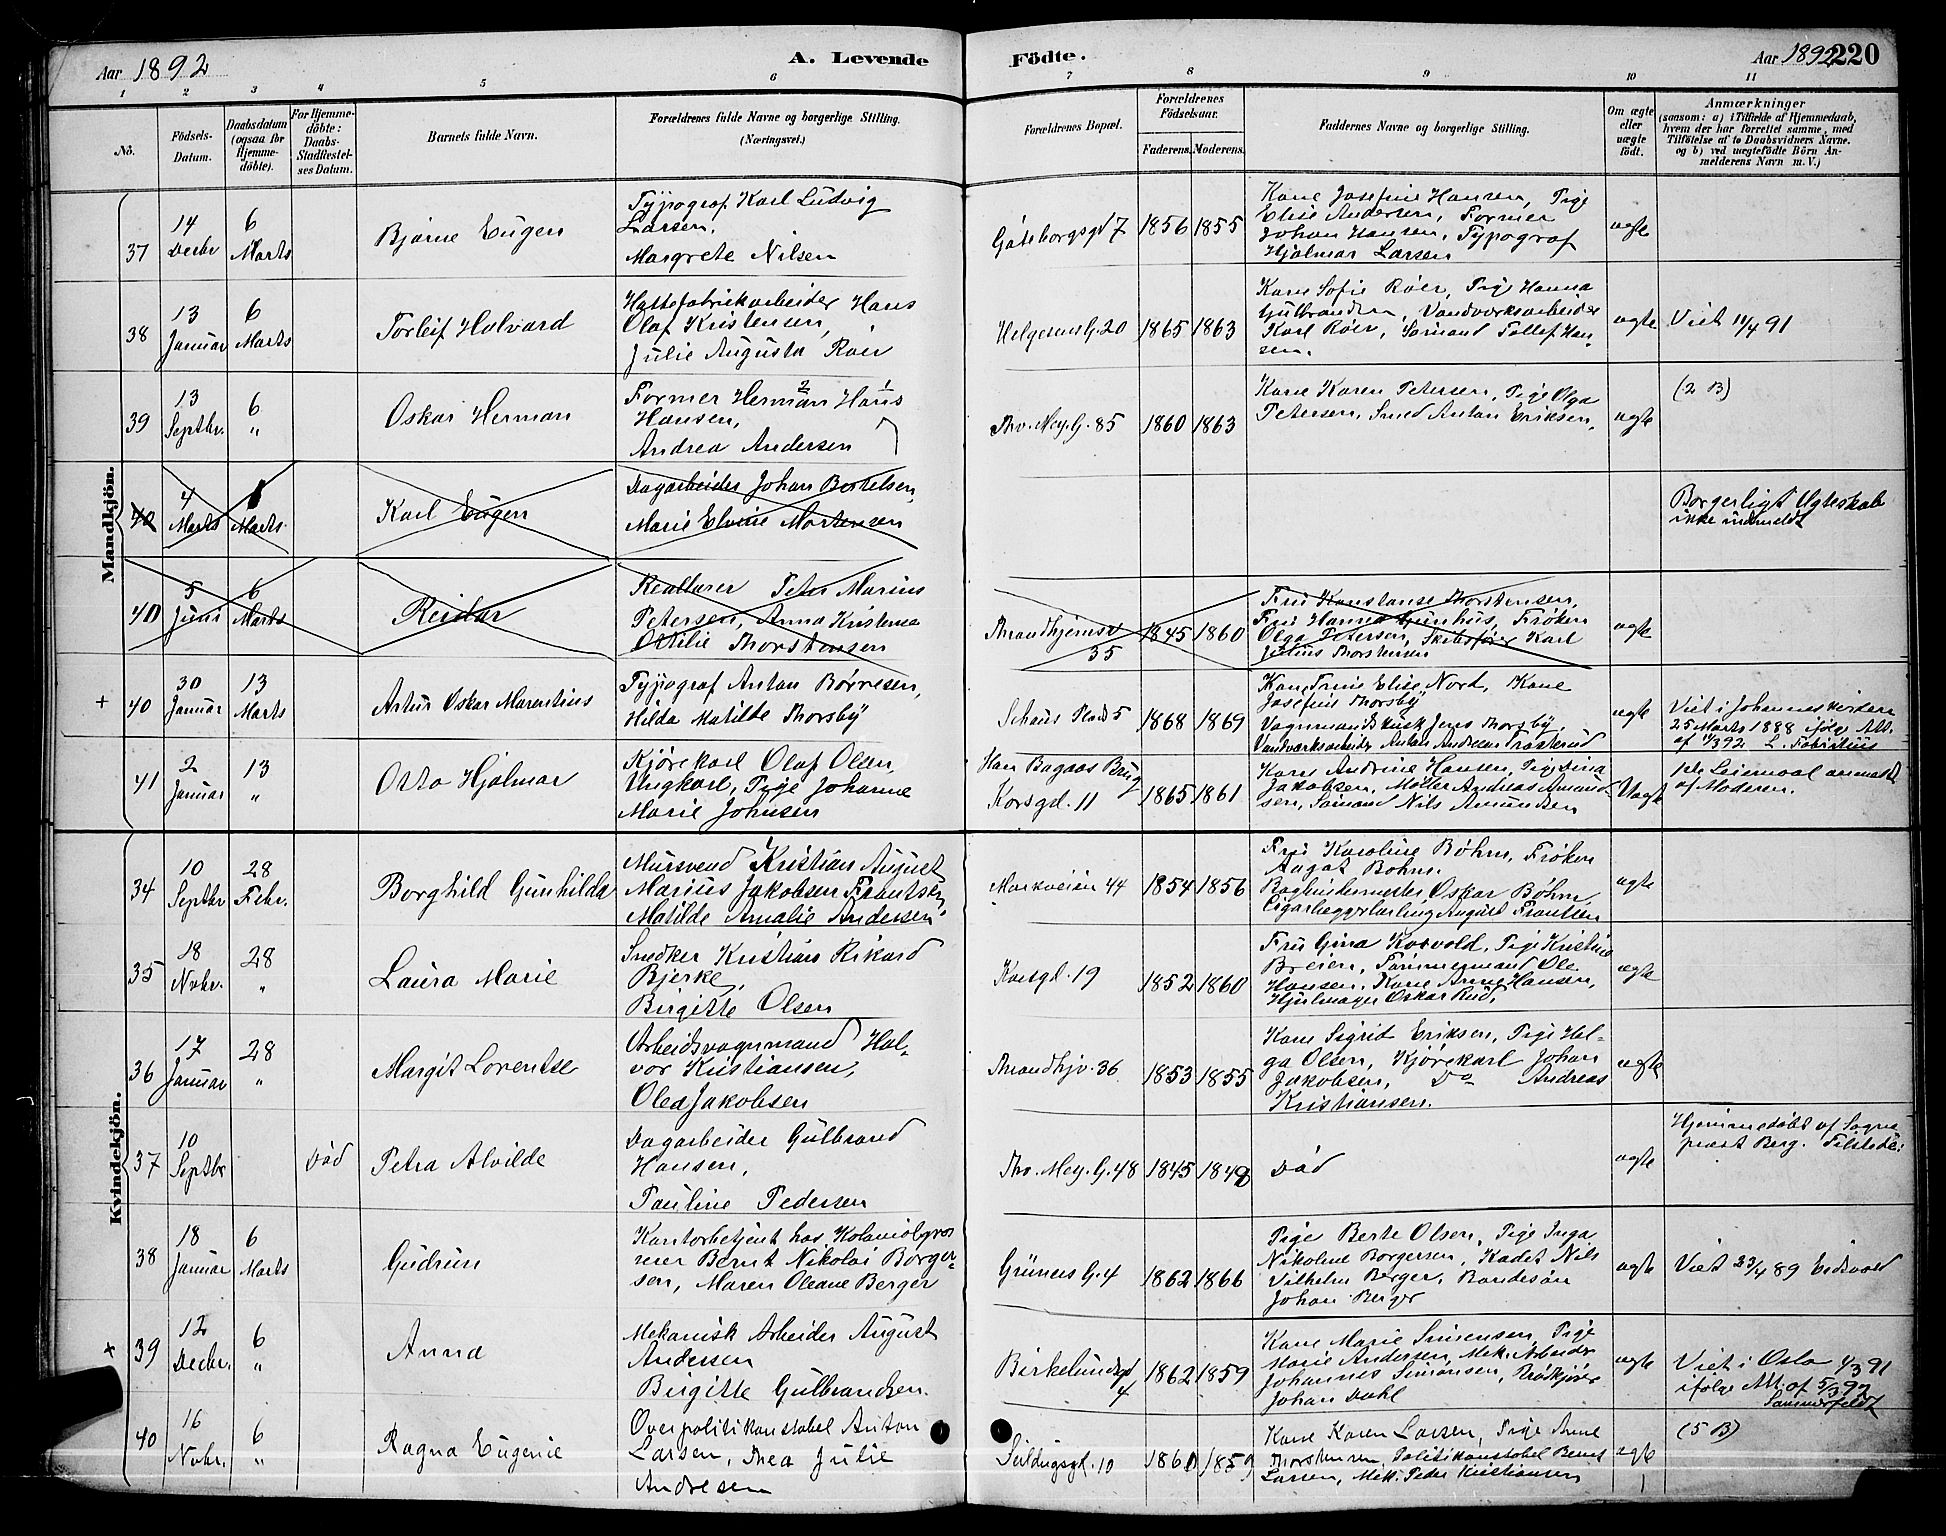 Aar 1892
A. Levende
Födte.
Aar 1892
220
1 2 3 4 5 6 7 8 9 10 11
No.
Födsels-
Datum.
Daabsdatum
(ogsaa for
Hjemme-
döbte).
For Hjemme-
döbte:
Daabs-
Stadfæstel-
ses Datum.
Barnets fulde Navn.
Forældrenes fulde Navne og borgerlige Stilling.
(Næringsvei.)
Forældrenes Bopæl.
Forældrenes
Födselsaar.
Faderens. Moderens.
Faddernes Navne og borgerlige Stilling.
Om ægte
eller
uægte
født.
Anmærkninger
(saasom: a) i Tilfælde af Hjemmedaab,
hvem der har forrettet samme, med
Tilföielse af to Daabsvidners Navne.
og b) ved uægtefödte Börn An-
melderens Navn m. V.)
Mandkjön.
37
14
Decbr
6
Marts
Bjarne Eugen
Typograf Karl Ludvig
Larsen,
Margrete Nilsen
Gøteborgsgd 7
1856 1855
Kone Josefine Hansen, Pige
Elise Andersen, Former
Johan Hansen, Typograf
Hjalmar Larsen
ægte
38
13
Januar
6
Marts
Torleif Halvard
Hattefabrikarbeider Hans
Olaf Kristensen,
Julie Augusta Røer
Helgesens G. 20
1865 1863
Kone Sofie Røer, Pige Hanna
Gulbrandsen, Vandværksarbeider
Karl Røer, Sømand Tollef Han-
sen.
ægte
Viet 11/4 91
39
13
Septbr.
6
"
Oskar Herman
Former Herman Hans
Hansen,
Andrea Andersen
Thv. Mey. G. 85
1860 1863
Kone Karen Petersen, Pige Olga
Petersen, Smed Anton Eriksen,
ægte
(2 B)
40
4
Marts
Marts
Karl Eugen
Dagarbeider Johan Bertelsen,
Marie Elvine Mortensen
Borgerligt Ægteskab
ikke indmeldt
40
5
Juni
6
Marts
Reidar
Peter Marius
Petersen, Anna Kristina
Ottilie Thorstensen
Throndhjemsv
35
1845 1860
Fru Konstanse Thorstensen,
Fru Hanna Frøken
Olga Petersen, Skibsfører Karl
Julius Thorstensen
ægte
+
40
30
Januar
13
Marts
Artur Oskar Marentius
Typograf Anton Børresen,
Hilda Matilde Thorsby
Schous Plads 5
1868 1869
Kone Trine Elise Nord, Kone
Josefine Thorsby
Vognmandskusk Jens Thorsby,
Vandværksarbeider Anton Andersen
ægte
Viet i Johanneskirken
25 Marts 1888 ifølge Att.
af
41
2
Januar
13
"
Otto Hjalmar
Kjørekarl Olaf Olsen,
Ungkarl, Pige Johanne
Marie Johnsen
Han Bagaas Brug
Korsgd. 11
1865 1861
Kone Andrine Hansen, Pige Dina
Jakobsen, Møller Andreas Amund-
sen, Sømand Nils Amundsen
Uægte
1ste Leiermaal anmeldt
af Moderen.
Kvindekjön.
34
10
Septbr
28
Febr.
Borghild Gunhilda
Mursvend Kristian August
Marius Jakobsen Frantsen,
Matilde Amalie Andersen
Markveien 44
1854 1856
Fru Karoline Bøhm, Frøken
Aagot Bøhm.
Bogbindermester Oskar Bøhm,
August Frantsen
ægte
35
18
Nvbr.
28
"
Laura Marie
Snedker Kristian Rikard
Bjerke,
Birgitte Olsen
Korsgd. 19
1852 1860
Fru Gina Korvold, Pige Kristine
Breien, Tømmermand Ole
Hansen, Kone Anne Hansen,
Hjulmager Oskar Rud,
ægte
36
17
Januar
28
"
Margit Lorentse
Arbeidsvognmand Hal-
vor Kristiansen,
Olea Jakobsen
Throndhjv. 36
1853 1855
Kone Sigrid Eriksen, Pige Hel-
ga Olsen, Kjørekarl Johan
Jakobsen, Do Andreas
Kristiansen.
ægte
37
10
Septbr
Død
Petra Alvilde
Dagarbeider Gulbrand
Hansen,
Pauline Pedersen
Thv. Mey. G. 48
1845 1848
Død
ægte
Hjemmedøbt af Sogne
præst Berg.
38
18
Januar
6
Marts
Gudrun
Kontorbetjent hos
Bernt Nikolai Borger-
sen, Maren Oleane Berger
Grüners G. 4
1862 1866
Pige Berte Olsen, Pige Inga
Nikoline Borgersen, Kadet Nils
Vilhelm Berger, Bondesøn
Johan Berger
ægte
Viet 23/4 89 Eidsvold
+
39
12
Decbr.
6
"
Anna
Mekanisk Arbeider August
Andersen
Birgitte Gulbrandsen.
Birkelundsgd
4
1862 1859
Kone Marie Simensen, Pige
Marie Andersen, Mek. Arbeider
Johannes Simonsen, Brødkjører
Johan Dahl
ægte
Viet i Oslo 1/3 91
ifølge Att. af 5/3 92
Sommerfeldt
40
16
Nvbr.
6
"
Ragna Eugenie
Overpolitikonstabel Anton
Larsen, Thea Julie
Andresen
Seildugsgd. 10
1860 1859
Kone Karen Larsen, Pige Anne
Thorstensen, Politikonstabel Bernt
Larsen, Mek. Peder Kristiansen
ægte
(5 B)